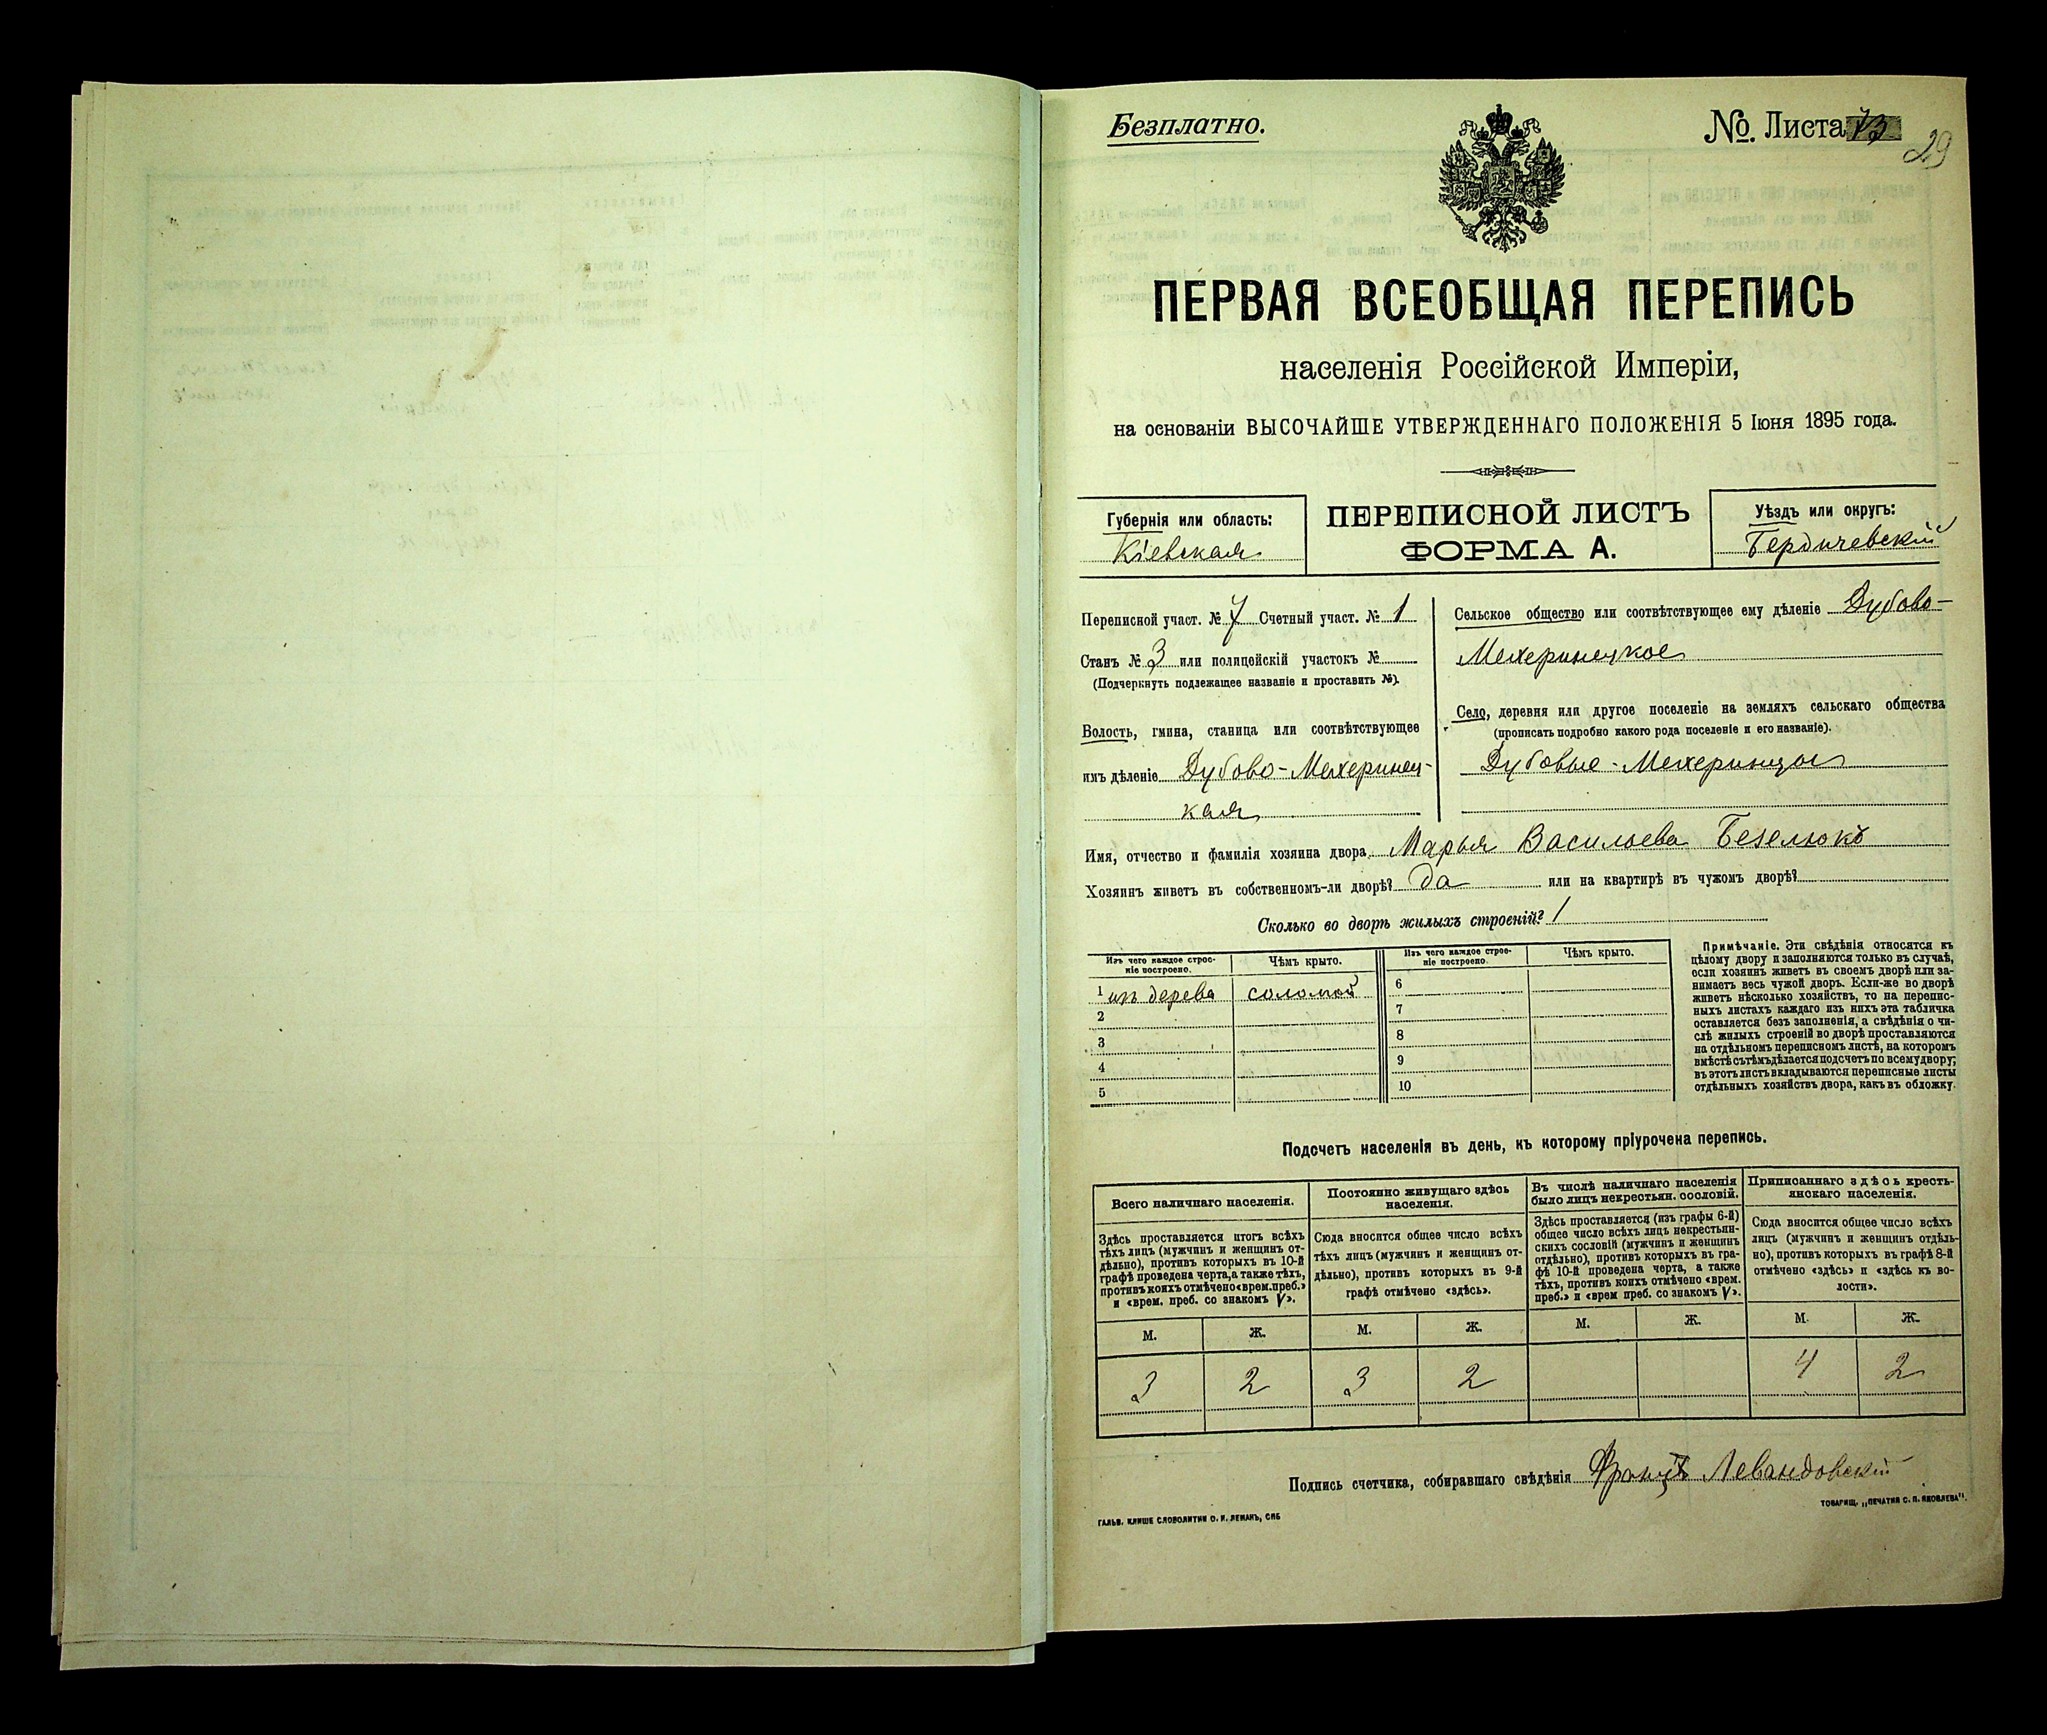 Безплатно.
№. Листа 13
29
ПЕРВАЯ ВСЕОБЩАЯ ПЕРЕПИСЬ
населенія Россійской Имперіи,
на основаніи ВЫСОЧАЙШЕ УТВЕРЖДЕННАГО ПОЛОЖЕНІЯ 5 Іюня 1895 года.
Губернія или область:
Кіевская
ПЕРЕПИСНОЙ ЛИСТЪ
ФОРМА А.
Уѣздъ или округъ:
Бердичевскій
Переписной участ. № 7 Счетный участ. № 1
Станъ № 3 или полицейскій участокъ №
(Подчеркнуть подлежащее названіе и проставить №).
Волость, гмина, станица или соотвѣтствующее
имъ дѣленіе Дубово-Мехеринец-
кая
Сельское общество или соотвѣтствующее ему дѣленіе Дубово-
Мехеринецкое
Село, деревня или другое поселеніе на земляхъ сельскаго общества
(прописать подробно какого рода поселеніе и его названіе).
Дубовые-Мехеринцы
Имя, отчество и фамилія хозяина двора Марья Васильева Безелюкъ
Хозяинъ живетъ въ собственномъ-ли дворѣ? да или на квартирѣ въ чужомъ дворѣ?
Сколько во дворѣ жилыхъ строеній? 1
Изъ чего каждое строе-
ніе построено.
Чѣмъ крыто.
Изъ чего каждое строе-
ніе построено.
Чѣмъ крыто.
1 изъ дерева соломой 6
2 7
3 8
4 9
5 10
Примѣчаніе. Эти свѣдѣнія относятся къ
цѣлому двору и заполняются только въ случаѣ,
если хозяинъ живетъ въ своемъ дворѣ или за-
нимаетъ весь чужой дворъ. Если-же во дворѣ
живетъ нѣсколько хозяйствъ, то на перепис-
ныхъ листахъ каждаго изъ нихъ эта табличка
оставляется безъ заполненія, а свѣдѣнія о чи-
слѣ жилыхъ строеній во дворѣ проставляются
на отдѣльномъ переписномъ листѣ, на которомъ
вмѣстѣ съ тѣмъ дѣлается подсчетъ по всему двору;
въ этотъ листъ вкладываются переписные листы
отдѣльныхъ хозяйствъ двора, какъ въ обложку.
Подсчетъ населенія въ день, къ которому пріурочена перепись.
Всего наличнаго населенія.
Здѣсь проставляется итогъ всѣхъ
тѣхъ лицъ (мужчинъ и женщинъ от-
дѣльно), противъ которыхъ въ 10-й
графѣ проведена черта, а также тѣхъ,
противъ коихъ отмѣчено «врем. преб.»
и «врем. преб. со знакомъ V».
Постоянно живущаго здѣсь
населенія.
Сюда вносится общее число всѣхъ
тѣхъ лицъ (мужчинъ и женщинъ от-
дѣльно), противъ которыхъ въ 9-й
графѣ отмѣчено «здѣсь».
Въ числѣ наличнаго населенія
было лицъ некрестьян. сословій.
Здѣсь проставляется (изъ графы 6-й)
общее число всѣхъ лицъ некрестьян-
скихъ сословій (мужчинъ и женщинъ
отдѣльно), противъ которыхъ въ гра-
фѣ 10-й проведена черта, а также
тѣхъ, противъ коихъ отмѣчено «врем.
преб.» и «врем преб. со знакомъ V».
Приписаннаго здѣсь кресть-
янскаго населенія.
Сюда вносится общее число всѣхъ
лицъ (мужчинъ и женщинъ отдѣль-
но), противъ которыхъ въ графѣ 8-й
отмѣчено «здѣсь» и «здѣсь къ во-
лости».
М. Ж. М. Ж. М. Ж. М. Ж.
3 2 3 2 4 2
Подпись счетчика, собиравшаго свѣдѣнія Францъ Левандовскій
ГАЛЬВ. КЛИШЕ СЛОВОЛИТНИ О. И. ЛЕМАНЪ, СПБ
ТОВАРИЩ. „ПЕЧАТНЯ С. П. ЯКОВЛЕВА".